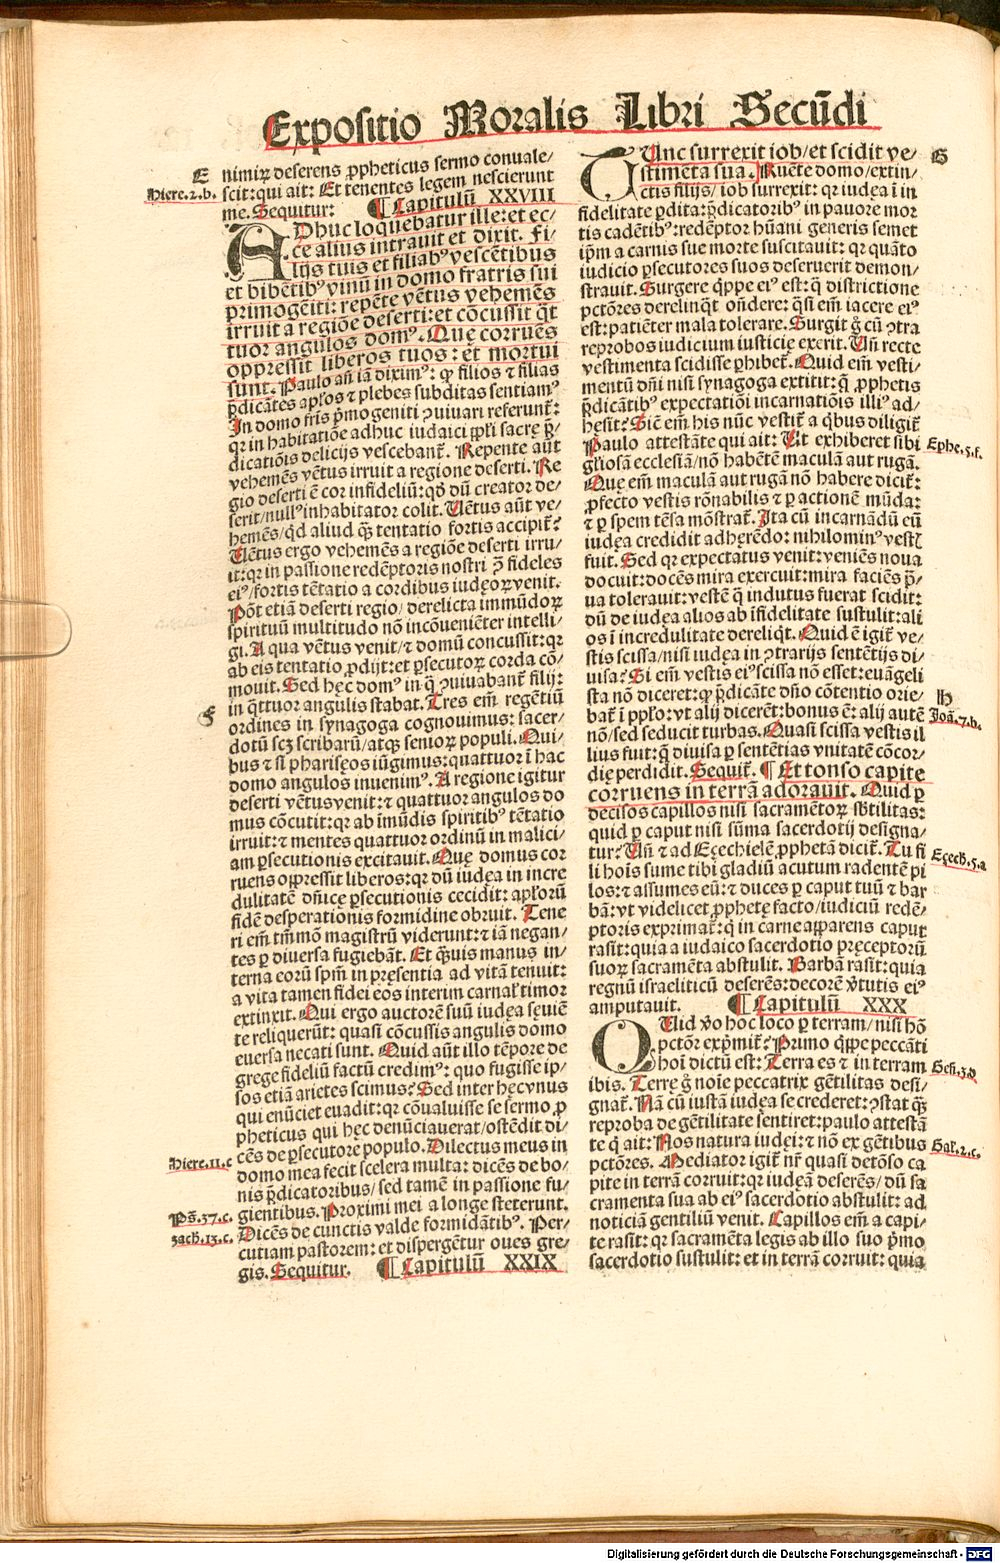 Expositio Moralis Libri Secūdi
E
nimiꝝ deserens ꝓpheticus sermo conuale/
Hiere.2.b.
scit: qui ait: Et tenentes legem nescierunt
me. Sequitur: ¶ Capitulū XXVIII
ADhuc loquebatur ille: et ec/
ce alius intrauit et dixit. Fi/
lijs tuis et filiabꝰ vescētibus
et bibētibꝰ vinū in domo fratris sui
primogēiti: repēte vētus vehemēs
irruit a regiōe deserti: et cōcussit q̄t
tuor angulos domꝰ. Que corruēs
oppressit liberos tuos: et mortui
sunt. Paulo aū iā diximꝰ: ꝙ filios ⁊ filias
p̄dicātes apłos ⁊ plebes subditas sentiamꝰ
In domo fris p̄mogeniti ꝯuiuari referunt̄:
qꝛ in habitatiōe adhuc iudaici ppłi sacrę p̄/
dicatiōis delicijs vescebant̄. Repente aūt
vehemēs vētus irruit a regione deserti. Re
gio deserti ē cor infideliū: qd̄ dū creator de/
serit/nullꝰ inhabitator colit. Uētus aūt ve/
hemēs/q̇d aliud q̄ꝫ tentatio fortis accipit̄?
Uētus ergo vehemēs a regiōe deserti irru/
it: qꝛ in passione redēptoris nostri ꝯ̄ fideles
eiꝰ/fortis tētatio a cordibus iudęoꝝ venit.
Pōt etiā deserti regio/derelicta immūdoꝝ
spirituū multitudo nō incōueniēter intelli/
gi. A qua vētus venit/⁊ domū concussit: qꝛ
ab eis tentatio ꝓdijt: et ꝑsecutoꝝ corda cō/
mouit. Sed hęc domꝰ in q̄ ꝯuiuabant̄ filij:
F
in q̄ttuor angulis stabat. Tres em̄ regētiū
ordines in synagoga cognouimus: sacer/
dotū scꝫ scribarū/atqꝫ senioꝝ populi. Qui/
bus ⁊ si pharisęos iūgimus: quattuor ī hac
domo angulos inuenimꝰ. A regione igitur
deserti vētus venit: ⁊ quattuor angulos do
mus cōcutit: qꝛ ab īmūdis spiritibꝰ tētatio
irruit: ⁊ mentes quattuor ordinū in malici/
am ꝑsecutionis excitauit. Quę domus cor
ruens oppressit liberos: qꝛ dū iudęa in incre
dulitatē dn̄icę ꝑsecutionis cecidit: apłorū
fidē desperationis formidine obruit. Tene
ri em̄ tm̄mō magistrū viderunt: ⁊ iā negan/
tes ꝑ diuersa fugiebāt. Et q̄uis manus in/
terna eorū spm̄ in pręsentia ad vitā tenuit:
a vita tamen fidei eos interim carnał timor
extinxit. Qui ergo auctorē suū iudęa sęuiē
te reliquerūt: quasi cōcussis angulis domo
euersa necati sunt. Quid aūt illo tēpore de
grege fideliū factū credimꝰ: quo fugisse ip/
sos etiā arietes scimus? Sed inter hęc vnus
qui enūciet euadit: qꝛ cōualuisse se sermo ꝓ
pheticus qui hęc denūciauerat/ostēdit di/
cēs de ꝑsecutore populo. Dilectus meus in
Hiere.11.c
domo mea fecit scelera multa: dicēs de bo/
nis p̄dicatoribus/sed tamē in passione fu/
gientibus. Proximi mei a longe steterunt.
Ps̄.37.c.
Dicēs de cunctis valde formidātibꝰ. Per/
zach.13.c.
cutiam pastorem: et dispergētur oues gre/
gis. Sequitur. ¶ Capitulū XXIX
TUnc surrexit iob/et scidit ve/
G
stimēta sua. Ruēte domo/extin/
ctis filijs/iob surrexit: qꝛ iudęa ī in
fidelitate ꝑdita: p̄dicatoribꝰ in pauore mor
tis cadētibꝰ: redēptor hūani generis semet
ip̄m a carnis sue morte suscitauit: qꝛ quāto
iudicio ꝑsecutores suos deseruerit demon/
strauit. Surgere q̇ppe eiꝰ est: q̇ districtione
pctōres derelinq̇t on̄dere: q̇si em̄ iacere eiꝰ
est: patiēter mala tolerare. Surgit g̊ cū ꝯtra
reprobos iudicium iusticię exerit. Uñ recte
vestimenta scidisse ꝑhibet̄. Quid em̄ vesti/
mentū dn̄i nisi synagoga extitit: q̄ ꝓphetis
p̄dicātibꝰ expectatiōi incarnatiōis illiꝰ ad/
hęsit? Sic em̄ his nūc vestit̄ a q̇bus diligit̄
Paulo attestāte qui ait: Ut exhiberet sibi
Ephe.5.f.
glīosā ecclesiā/nō habētē maculā aut rugā.
Quę em̄ maculā aut rugā nō habere dicit̄:
ꝓfecto vestis rōnabilis ⁊ ꝑ actionē mūda:
⁊ ꝑ spem tēsa mōstrat̄. Ita cū incarnādū eū
iudęa credidit adhęrēdo: nihilominꝰ vestꝭ
fuit. Sed qꝛ expectatus venit: veniēs noua
docuit: docēs mira exercuit: mira faciēs p̄/
ua tolerauit: vestē q̄ indutus fuerat scidit:
dū de iudęa alios ab īfidelitate sustulit: ali
os ī incredulitate dereliq̇t. Quid ē igit̄ ve/
stis scissa/nisi iudęa in ꝯtrarijs sentētijs di/
uisa? Si em̄ vestis eiꝰ scissa nō esset: euāgeli
sta nō diceret: ꝙ p̄dicāte dn̄o cōtentio orie/
H
bat̄ ī ppło: vt alij dicerēt: bonus ē: alij autē
Joā.7.b.
nō/sed seducit turbas. Quasi scissa vestis il
lius fuit: q̄ diuisa ꝑ sentētias vnitatē cōcor/
dię perdidit. Sequit̄. ¶ Et tonso capite
corruens in terrā adorauit. Quid ꝑ
decisos capillos nisi sacramētoꝝ sb̄tilitas:
quid ꝑ caput nisi sūma sacerdotij designa/
tur? Uñ ⁊ ad Ezechielē ꝓphetā dicit̄. Tu fi
Ezech.5.a
li hoīs sume tibi gladiū acutum radentē pi
los: ⁊ assumes eū: ⁊ duces ꝑ caput tuū ⁊ bar
bā: vt videlicet ꝓphetę facto/iudiciū redē/
ptoris exprimat̄: q̇ in carne apparens caput
rasit: quia a iudaico sacerdotio pręceptorū
suoꝝ sacramēta abstulit. Barbā rasit: quia
regnū israeliticū deserēs: decorē v̄tutis eiꝰ
amputauit. ¶ Capitulū XXX
QUid v̊o hoc loco ꝑ terram/nisi hō
pctōr exp̄mit̄? Primo q̇ppe peccāti
hoī dictū est: Terra es ⁊ in terram
Geñ.3.d
ibis. Terrę g̊ noīe peccatrix gētilitas desi/
gnat̄. Nā cū iustā iudęa se crederet: ꝯstat q̄ꝫ
reproba de gētilitate sentiret: paulo attestā
te q̇ ait: Nos natura iudęi: ⁊ nō ex gētibus
Gał.2.c.
pctōres. Mediator igit̄ nr̄ quasi detōso ca
pite in terrā corruit: qꝛ iudęā deserēs/dū sa
cramenta sua ab eiꝰ sacerdotio abstulit: ad
noticiā gentiliū venit. Capillos em̄ a capi/
te rasit: qꝛ sacramēta legis ab illo suo p̄mo
sacerdotio sustulit: et in terrā corruit: quia
Digitalisierung gefördert durch die Deutsche Forschungsgemeinschaft - DFG